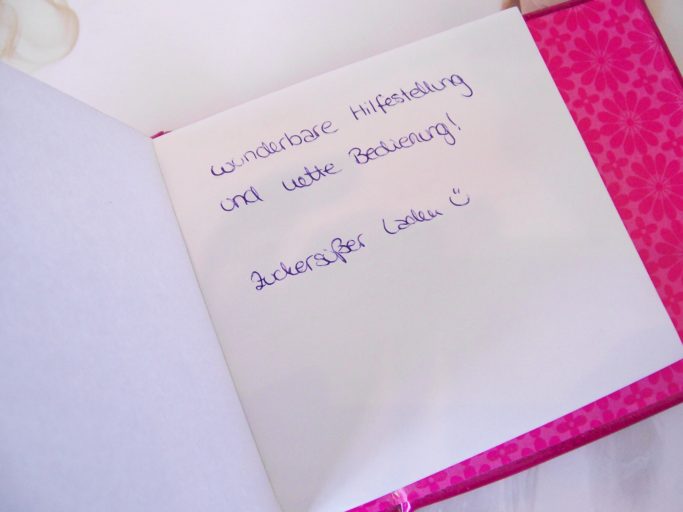 wunderbare Hilfestellung
und nette Bedienung!
Zuckersüßer Laden ü